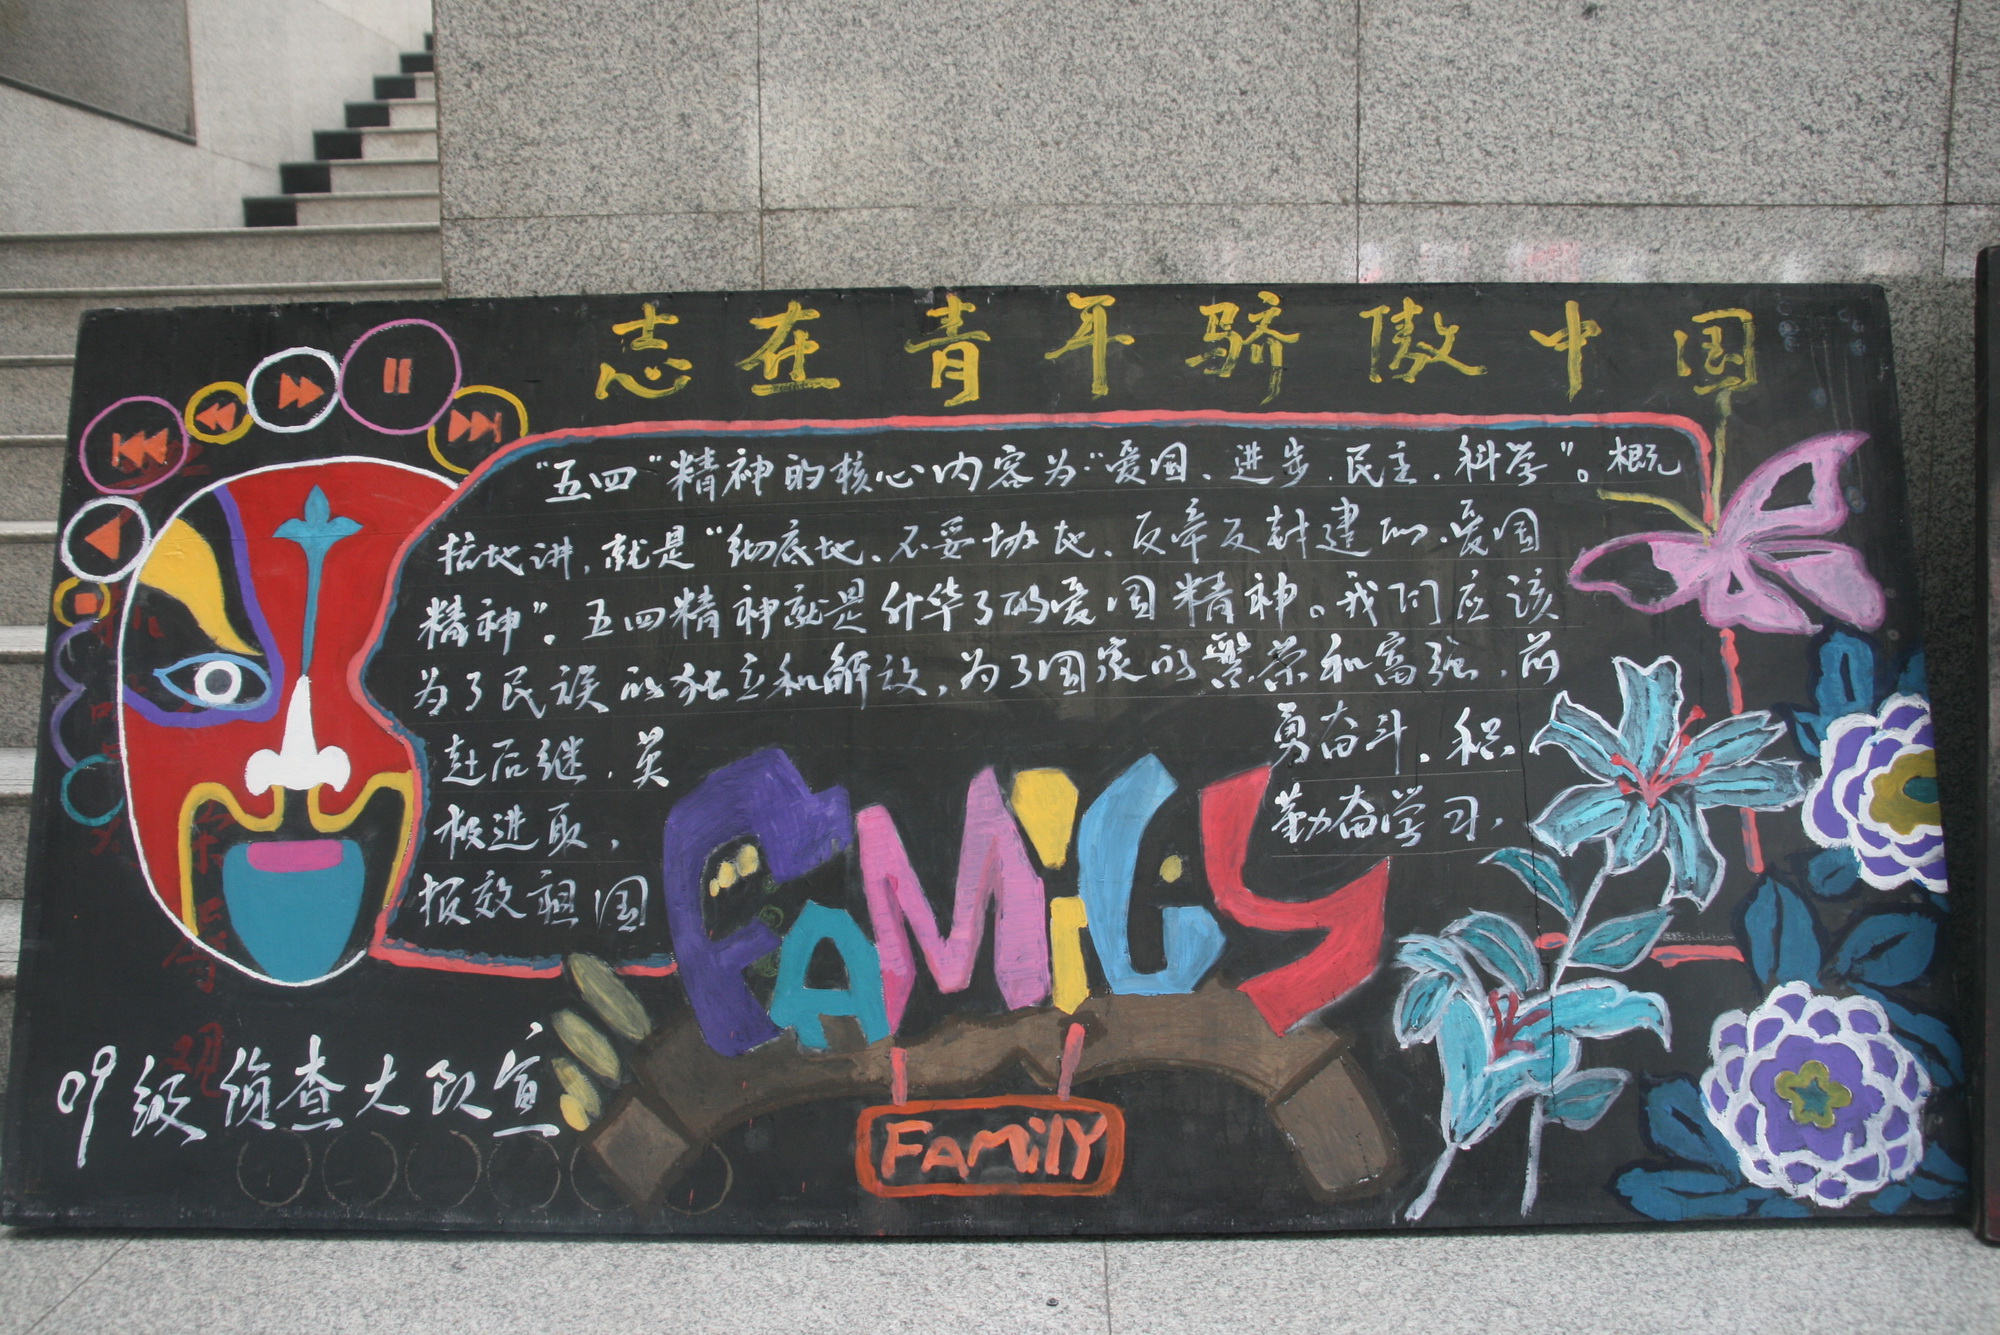 志在青年骄傲中国
“五四”精神的核心内容为:“爱国、进步、民主、科学”。概
括地讲，就是“彻底地、不妥协地、反帝反封建的、爱国
精神”。五四精神就是升华了的爱国精神。我们应该
为了民族的独立和解放，为了国家的繁荣和富强，前
赴后继，英
勇奋斗，积
极进取，
勤奋学习，
报效祖国
FAMILY
FAMILY
09级侦查大队宣